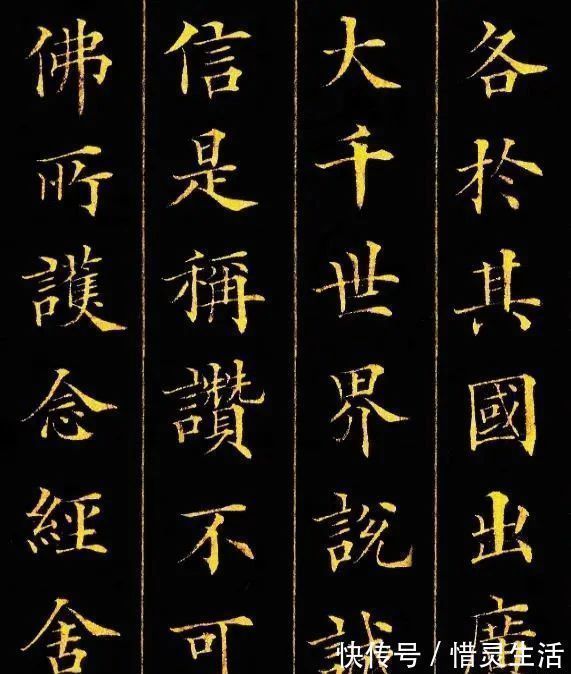 各於其國出廣
大千世界説誠
信是稱讚不可
佛所護念經舍
快传号/惜灵生活